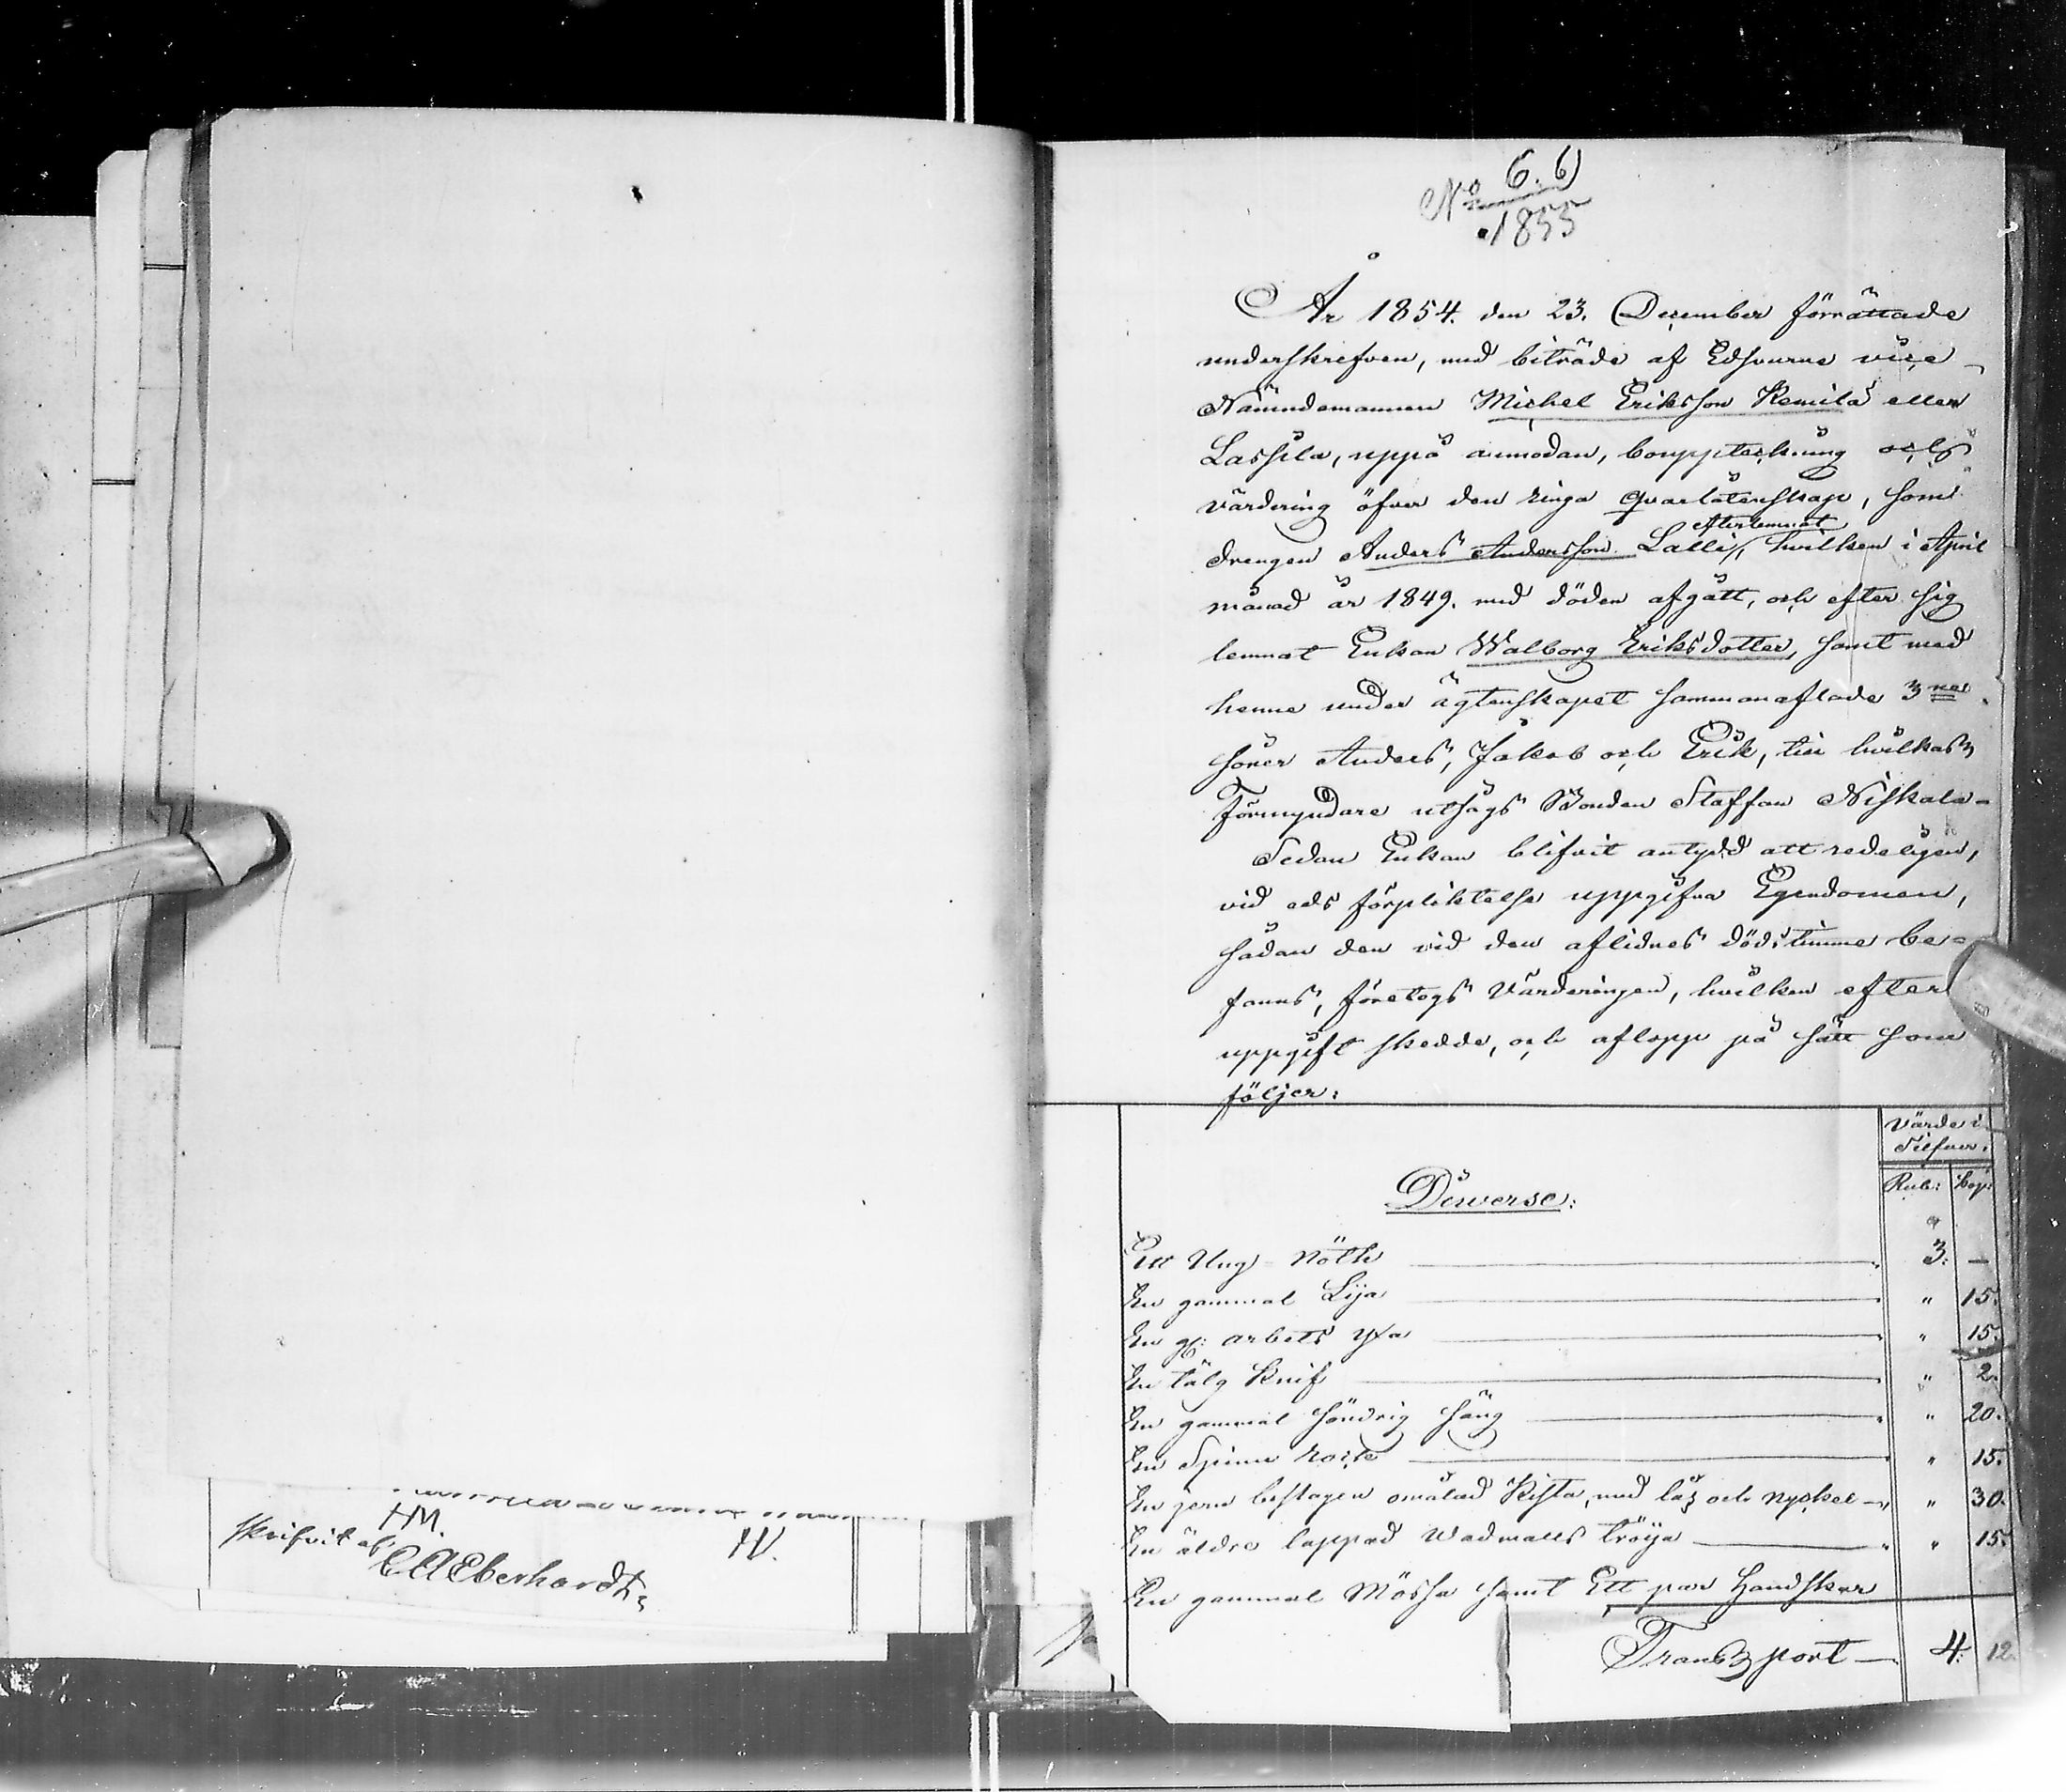 HM. N.
skrifvit af
C A Eberhardt
No 6. 6
1855
År 1854. den 23. December förrättade
underskrefven, med biträde af Edsvurne vice
Nämndemannen Michel Eriksson Remilä eller
Lassila, uppå anmodan, bouppteckning och
värdering öfver den ringa qvarlåtenskap, som
efterlemnat
drengen Anders Andersson Lalli //, hvilken i April
månad år 1849. med döden afgått, och efter sig
lemnat Enkan Walborg Eriksdotter, samt med
henne under ägtenskapet sammanaflade 3ne
söner Anders, Jakob och Erik, till hvilkas
Förmyndare utsågs Bonden Staffan Niskala -
Sedan Enkan blifvit antydd att redeligen,
vid eds förpliktelse uppgifva Egendomen,
sådan den vid den aflidnes dödstimme be-
fanns, företogs Värderingen, hvilken efter
uppgift skedde, och aflopp på sätt som
följer:
Värde i
Silfver.
Rub: Kop:
Diverse:
Ett Ung Nöth 3. —
En gammal Lija " 15.
En gl: arbets yxa " 15.
En tälg Knif " 2.
En gammal söndrig säng " 20.
En Spinn rock " 15.
En jern beslagen omålad Kista, med lås och nyckel " 30.
En äldre lappad Wadmalls tröja " 15.
En gammal Mössa samt Ett par Handskar
Transport — 4. 12.